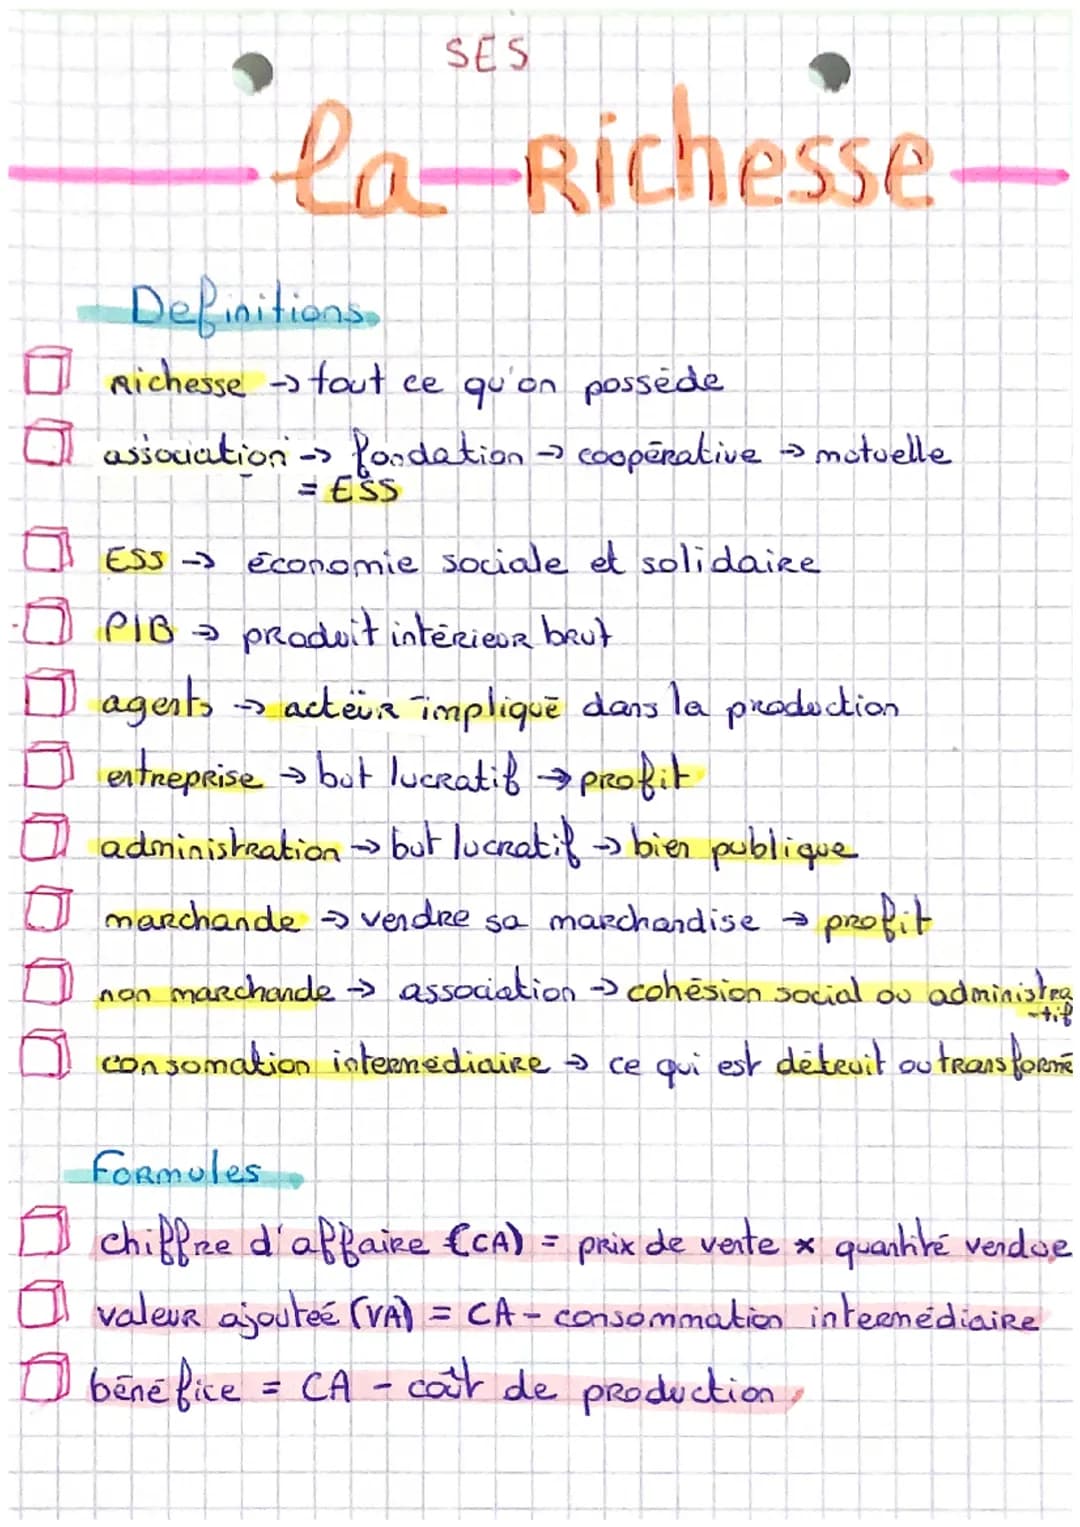 SES
la Richesse
Definitions
Richesse → tout ce qu'on possède
association → fondation → coopérative → mutuelle
= ESS
ESS → économie sociale et solidaire
PIB → produit intérieur brut
agents → acteur impliqué dans la production
entreprise → but lucratif → profit
administration → but lucratif → bien publique
marchande → vendre sa marchandise → profit
non marchande → association → cohésion social ou administra
-tif
consomation intermédiaire → ce qui est détruit ou transformé
Formules
chiffre d'affaire (CA) = prix de vente × quantité vendue
valeur ajouteé (VA) = CA - consommation intermédiaire
bénéfice = CA - coût de production